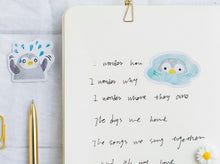 I wonder how
I wonder why
I wonder where they are
The days we had
The songs we sang together